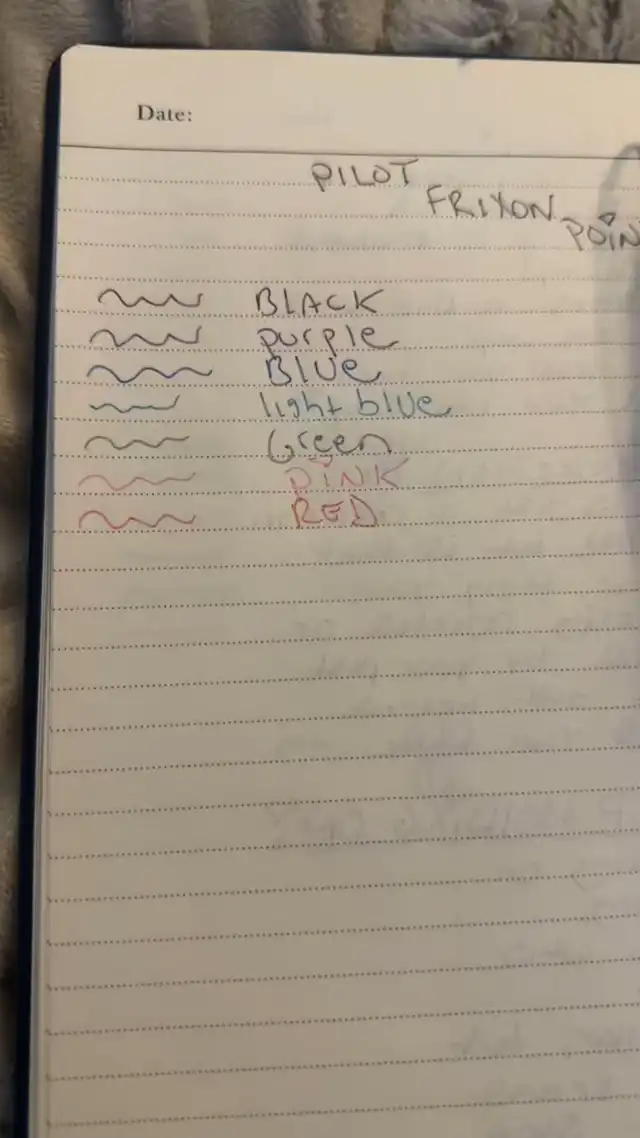 Date:
PILOT
FRIXON
POIN
BLACK
purple
BLUe
light blue
Green
PiNK
RED